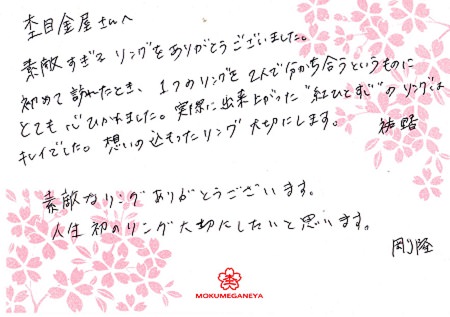 杢目金屋さんへ
素敵すぎるリングをありがとうございました。
初めて訪れたとき、1つのリングを2人で分かち合うというものに
とても心ひかれました。実際に出来上がった"紅ひとすじ"のリングは
キレイでした。想いの込もったリング大切にします。
素敵なリングありがとうございます。
人生初のリング大切にしたいと思います。
剛隆
MOKUMEGANEYA